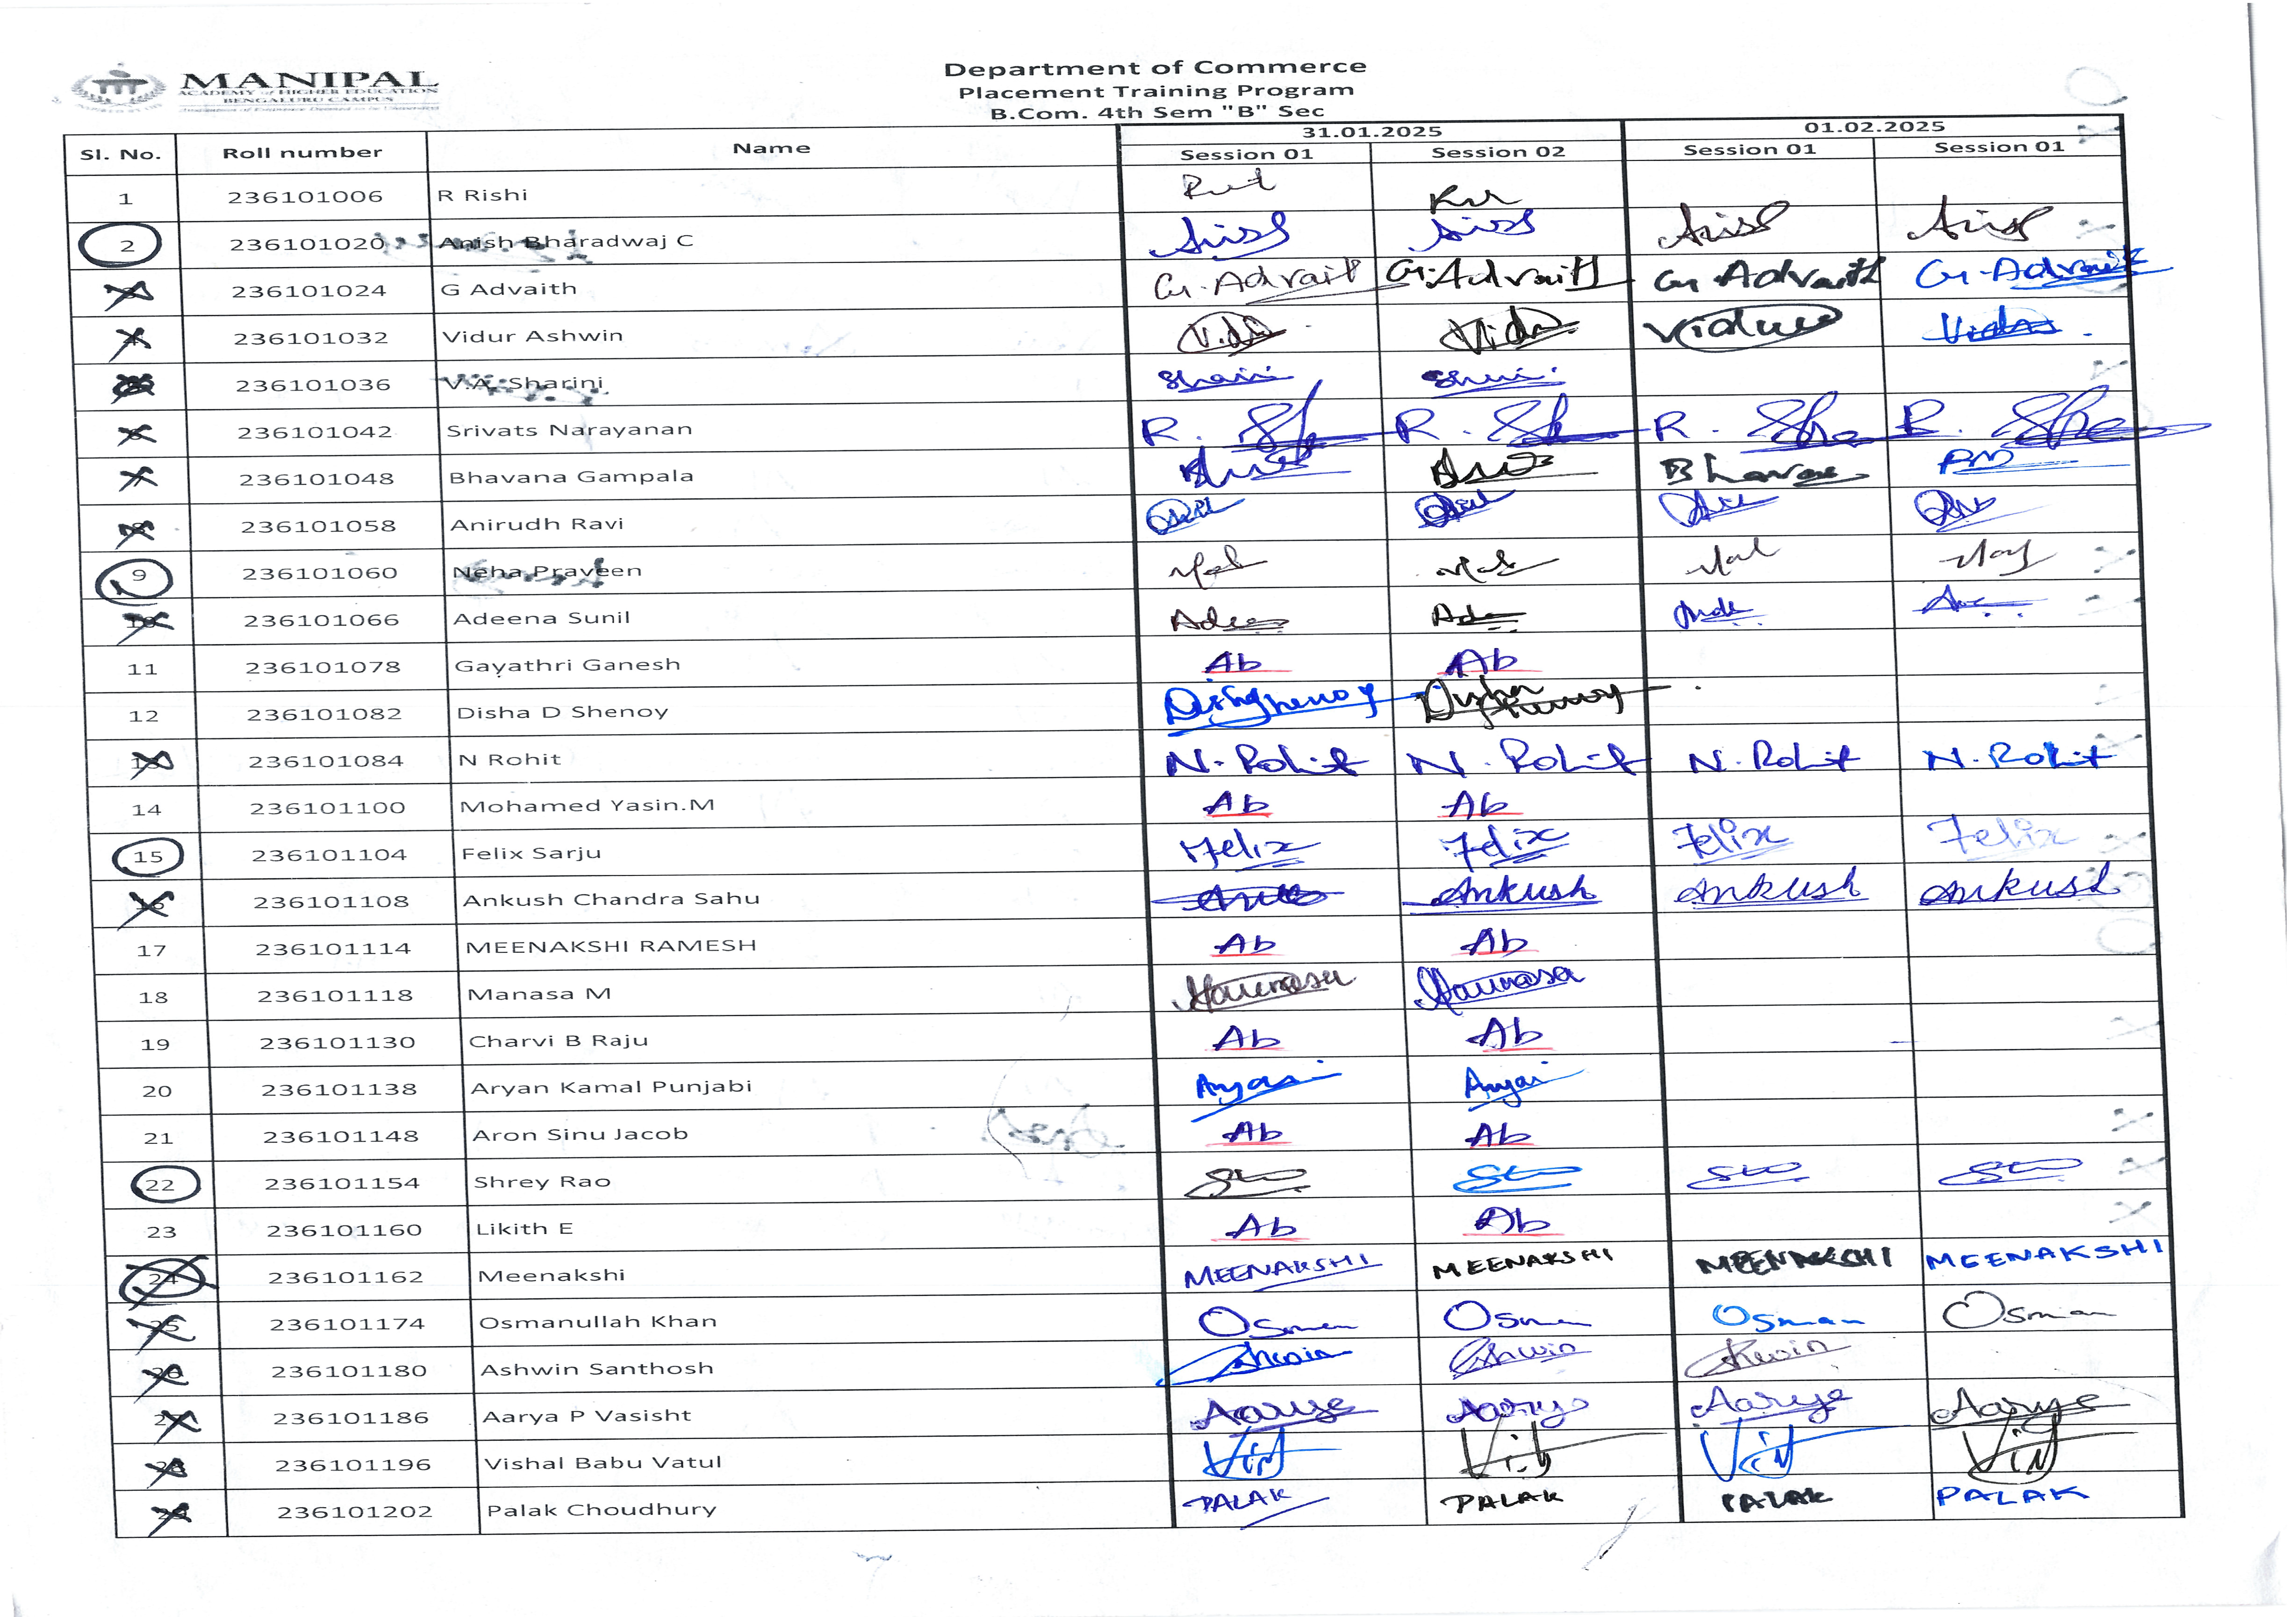 MANIPAL
ACADEMY of HIGHER EDUCATION
BENGALURU CAMPUS
Department of Commerce
Placement Training Program
B.Com. 4th Sem "B" Sec
Sl. No. Roll number Name 31.01.2025 01.02.2025
Session 01 Session 02 Session 01 Session 01
1 236101006 R Rishi
2 236101020 Anish Bharadwaj C
236101024 G Advaith G. Advait G. Advaith G. Advaith G. Advait
236101032 Vidur Ashwin
236101036 V.A. Sharini
236101042 Srivats Narayanan
236101048 Bhavana Gampala
236101058 Anirudh Ravi
9 236101060 Neha Praveen
10 236101066 Adeena Sunil
11 236101078 Gayathri Ganesh Ab Ab
12 236101082 Disha D Shenoy
13 236101084 N Rohit N. Rohit N. Rohit N. Rohit N. Rohit
14 236101100 Mohamed Yasin.M Ab Ab
15 236101104 Felix Sarju Felix Felix Felix Felix
16 236101108 Ankush Chandra Sahu Ankush Ankush Ankush
17 236101114 MEENAKSHI RAMESH Ab Ab
18 236101118 Manasa M
19 236101130 Charvi B Raju Ab Ab
20 236101138 Aryan Kamal Punjabi
21 236101148 Aron Sinu Jacob Ab Ab
22 236101154 Shrey Rao
23 236101160 Likith E Ab Ab
24 236101162 Meenakshi MEENAKSHI MEENAKSHI MEENAKSHI MEENAKSHI
25 236101174 Osmanullah Khan Osman Osman Osman Osman
26 236101180 Ashwin Santhosh Ashwin Ashwin Ashwin
27 236101186 Aarya P Vasisht Aarya Aarya Aarya Aarya
28 236101196 Vishal Babu Vatul
29 236101202 Palak Choudhury PALAK PALAK PALAK PALAK